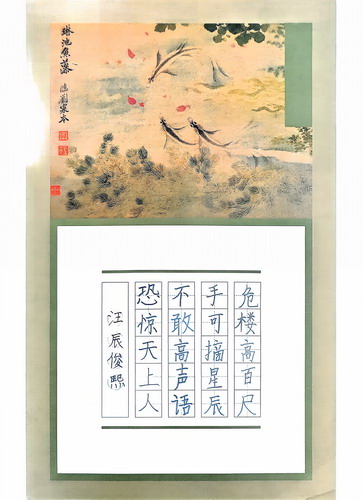 危楼高百尺
手可摘星辰
不敢高声语
恐惊天上人
汪辰俊熙